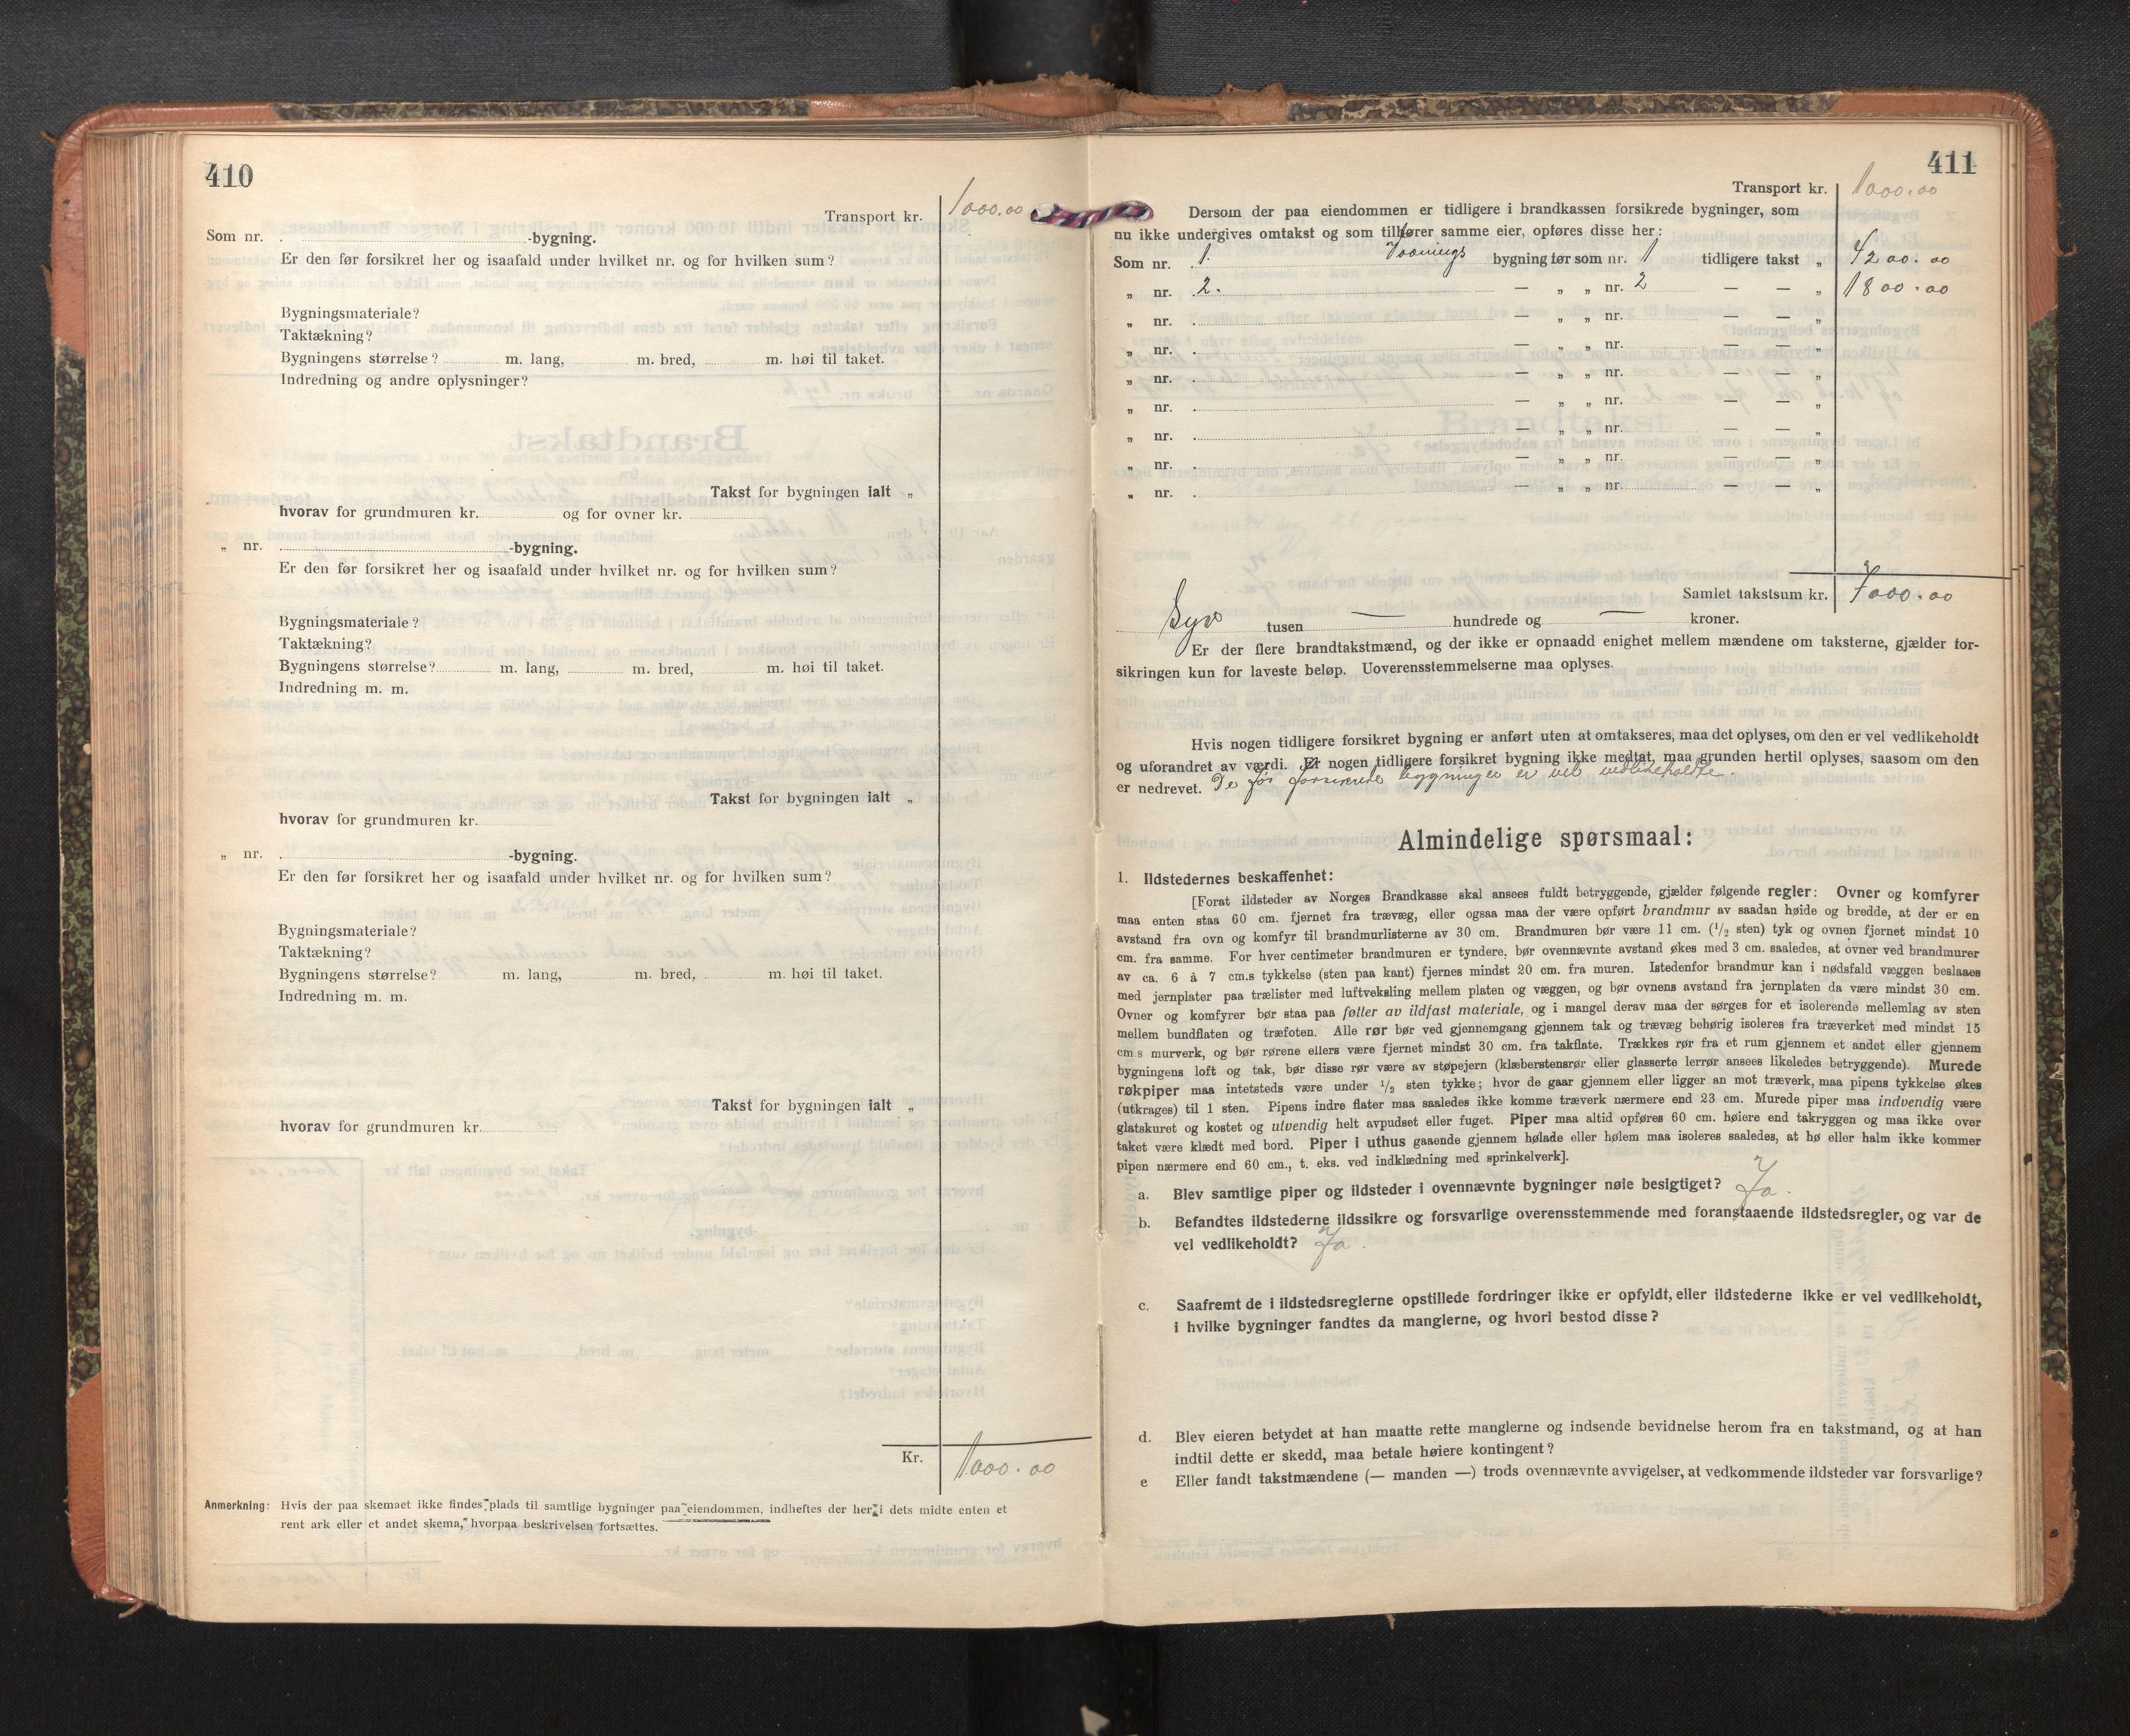 410
Transport kr. 1000.00
Som nr. -bygning.
Er den før forsikret her og isaafald under hvilket nr. og for hvilken sum?
Bygningsmateriale?
Taktækning?
Bygningens størrelse? m. lang, m. bred, m. høi til taket.
Indredning og andre oplysninger?
Takst for bygningen ialt „
hvorav for grundmuren kr. og for ovner kr.
„ nr. -bygning.
Er den før forsikret her og isaafald under hvilket nr. og for hvilken sum?
Bygningsmateriale?
Taktækning?
Bygningens størrelse? m. lang, m. bred, m. høi til taket.
Indredning m. m.
Takst for bygningen ialt „
hvorav for grundmuren kr.
„ nr. -bygning.
Er den før forsikret her og isaafald under hvilket nr. og for hvilken sum?
Bygningsmateriale?
Taktækning?
Bygningens størrelse? m. lang, m. bred, m. høi til taket.
Indredning m. m.
Takst for bygningen ialt „
hvorav for grundmuren kr.
Kr. 1000.00
Anmerkning: Hvis der paa skemaet ikke findes plads til samtlige bygninger paa eiendommen, indheftes der her i dets midte enten et
rent ark eller et andet skema, hvorpaa beskrivelsen fortsættes.
411
Transport kr. 1000.00
Dersom der paa eiendommen er tidligere i brandkassen forsikrede bygninger, som
nu ikke undergives omtakst og som tilhører samme eier, opføres disse her:
Som nr. 1. Vaanings bygning før som nr. 1 tidligere takst „ 4200.00
„ nr. 2. — „ „ nr. 2 — — „ 1800.00
„ nr. — „ „ nr. — — „
„ nr. — „ „ nr. — — „
„ nr. — „ „ nr. — — „
„ nr. — „ „ nr. — — „
„ nr. — „ „ nr. — — „
„ nr. — „ „ nr. — — „
„ nr. — „ „ nr. — — „
Samlet takstsum kr. 7000.00
Syv tusen — hundrede og — kroner.
Er der flere brandtakstmænd, og der ikke er opnaadd enighet mellem mændene om taksterne, gjælder for-
sikringen kun for laveste beløp. Uoverensstemmelserne maa oplyses.
Hvis nogen tidligere forsikret bygning er anført uten at omtakseres, maa det oplyses, om den er vel vedlikeholdt
og uforandret av værdi. Er nogen tidligere forsikret bygning ikke medtat, maa grunden hertil oplyses, saasom om den
er nedrevet. De før forsikrede bygninger er vel vedlikeholdte.
Almindelige spørsmaal:
1. Ildstedernes beskaffenhet:
[Forat ildsteder av Norges Brandkasse skal ansees fuldt betryggende, gjælder følgende regler: Ovner og komfyrer
maa enten staa 60 cm. fjernet fra trævæg, eller ogsaa maa der være opført brandmur av saadan høide og bredde, at der er en
avstand fra ovn og komfyr til brandmurlisterne av 30 cm. Brandmuren bør være 11 cm. (1/2 sten) tyk og ovnen fjernet mindst 10
cm. fra samme. For hver centimeter brandmuren er tyndere, bør ovennævnte avstand økes med 3 cm. saaledes, at ovner ved brandmurer
av ca. 6 à 7 cm.s tykkelse (sten paa kant) fjernes mindst 20 cm. fra muren. Istedenfor brandmur kan i nødsfald væggen beslaaes
med jernplater paa trælister med luftveksling mellem platen og væggen, og bør ovnens avstand fra jernplaten da være mindst 30 cm.
Ovner og komfyrer bør staa paa føtter av ildfast materiale, og i mangel derav maa der sørges for et isolerende mellemlag av sten
mellem bundflaten og træfoten. Alle rør bør ved gjennemgang gjennem tak og trævæg behørig isoleres fra træverket med mindst 15
cm.s murverk, og bør rørene ellers være fjernet mindst 30 cm. fra takflate. Trækkes rør fra et rum gjennem et andet eller gjennem
bygningens loft og tak, bør disse rør være av støpejern (klæberstensrør eller glasserte lerrør ansees likeledes betryggende). Murede
røkpiper maa intetsteds være under 1/2 sten tykke; hvor de gaar gjennem eller ligger an mot træverk, maa pipens tykkelse økes
(utkrages) til 1 sten. Pipens indre flater maa saaledes ikke komme træverk nærmere end 23 cm. Murede piper maa indvendig være
glatskuret og kostet og utvendig helt avpudset eller fuget. Piper maa altid opføres 60 cm. høiere end takryggen og maa ikke over
taket være klædt med bord. Piper i uthus gaaende gjennem hølade eller hølem maa isoleres saaledes, at hø eller halm ikke kommer
pipen nærmere end 60 cm., t. eks. ved indklædning med sprinkelverk].
a. Blev samtlige piper og ildsteder i ovennævnte bygninger nøie besigtiget? Ja.
b. Befandtes ildstederne ildssikre og forsvarlige overensstemmende med foranstaaende ildstedsregler, og var de
vel vedlikeholdt? Ja.
c. Saafremt de i ildstedsreglerne opstillede fordringer ikke er opfyldt, eller ildstederne ikke er vel vedlikeholdt,
i hvilke bygninger fandtes da manglerne, og hvori bestod disse?
d. Blev eieren betydet at han maatte rette manglerne og indsende bevidnelse herom fra en takstmand, og at han
indtil dette er skedd, maa betale høiere kontingent?
e Eller fandt takstmændene (— manden —) trods ovennævnte avvigelser, at vedkommende ildsteder var forsvarlige?